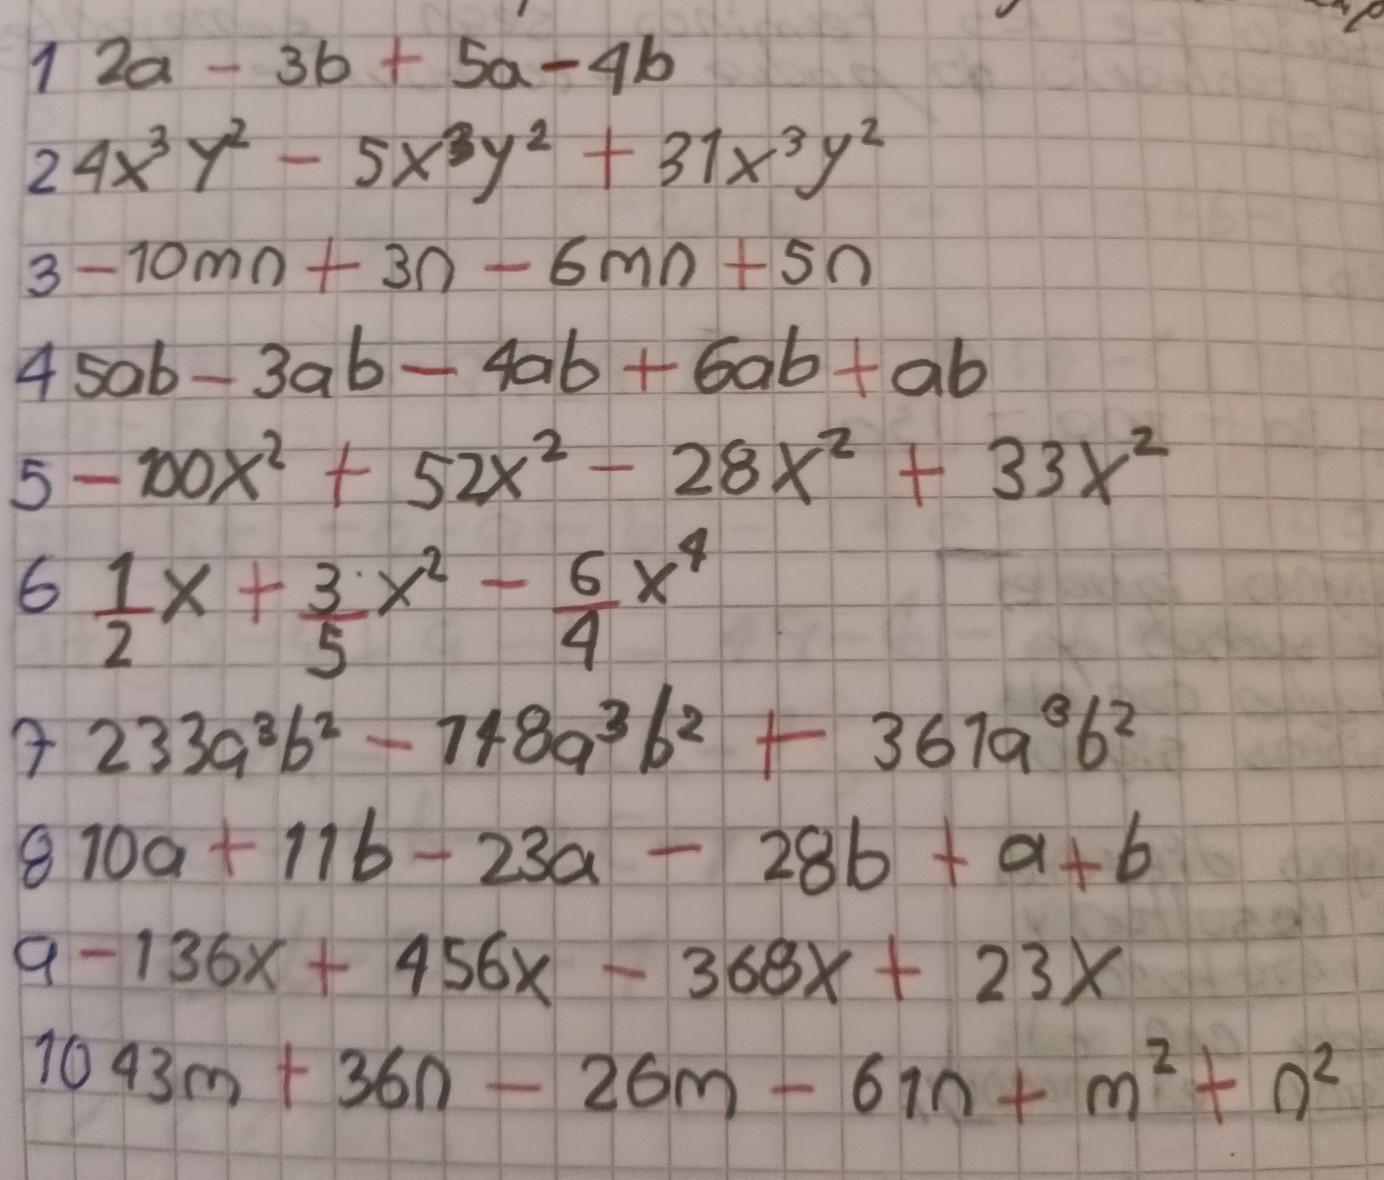 1 2a - 3b + 5a - 4b
2 4x³y² - 5x³y² + 31x³y²
3 -10mn + 3n - 6mn + 5n
4 5ab - 3ab - 4ab + 6ab + ab
5 -100x² + 52x² - 28x² + 33x²
6 1/2 x + 3/5 x² - 6/4 x⁴
7 233a³b² - 148a³b² + 361a³b²
8 10a + 11b - 23a - 28b + a + b
9 -136x + 456x - 368x + 23x
10 43m + 36n - 26m - 61n + m² + n²